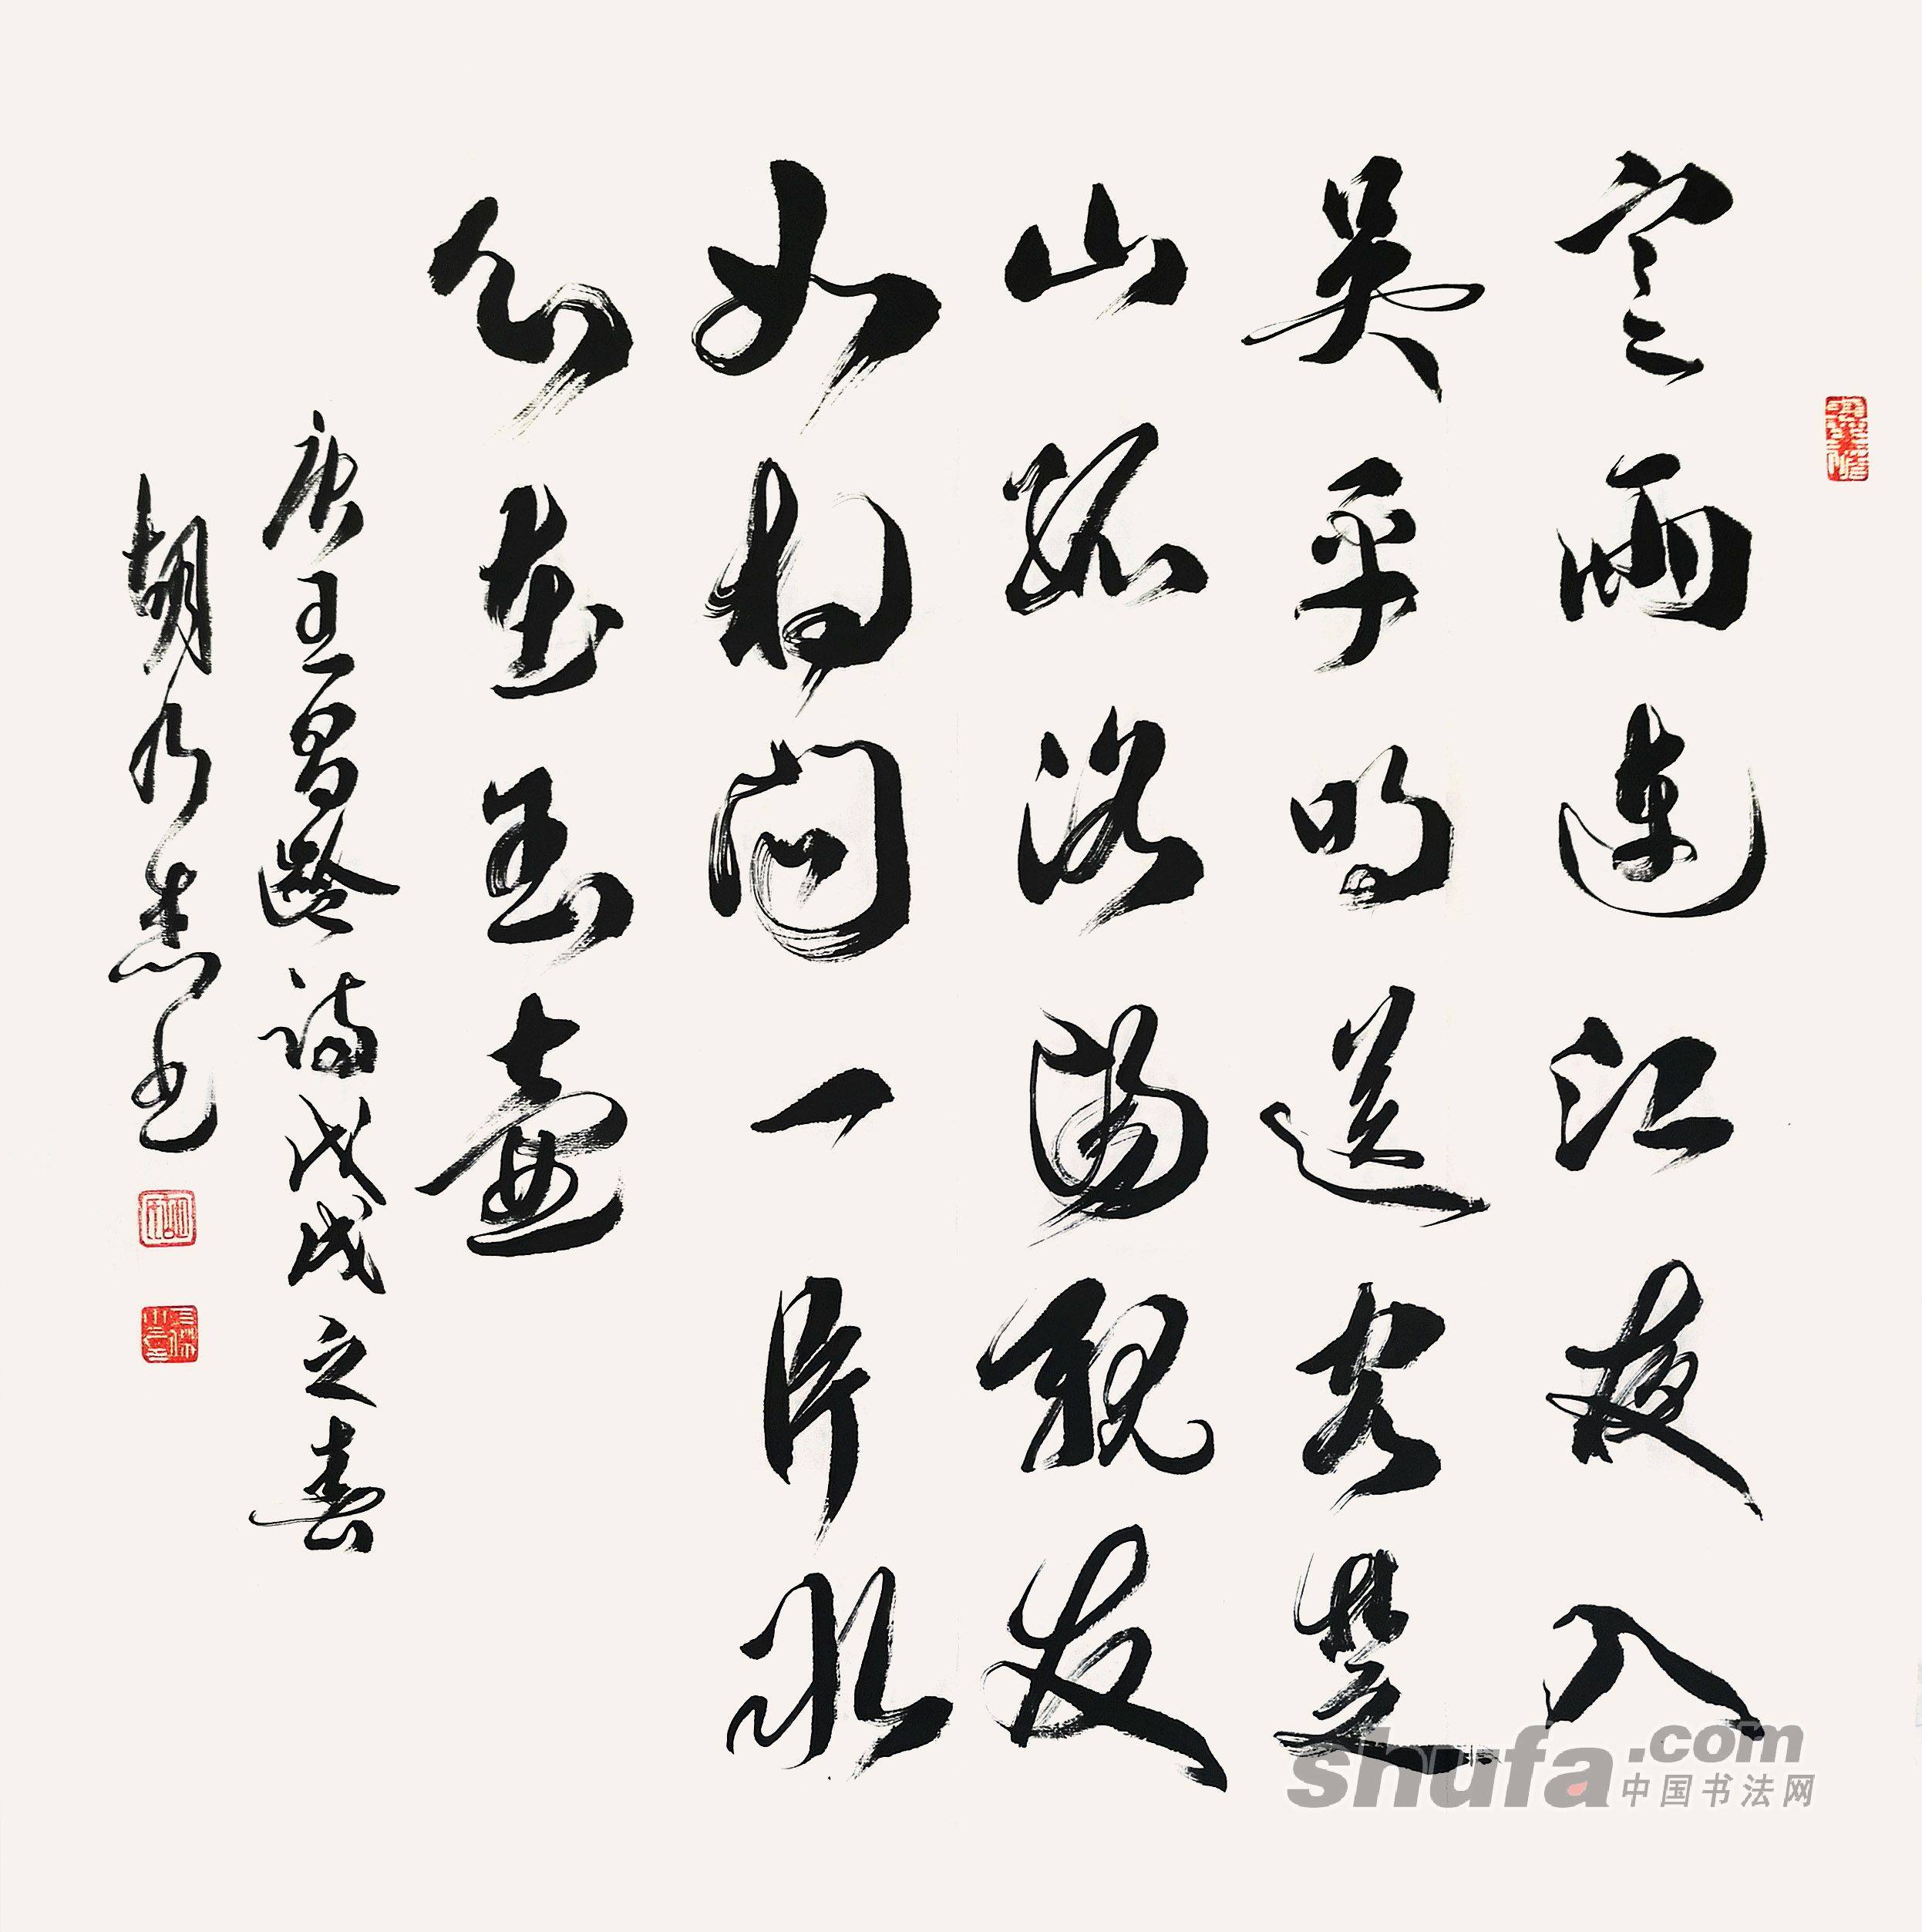 寒雨連江夜入
吴平明送客楚
山孤洛陽親友
如相問一片冰
心在玉壺
唐王昌齡詩戊戌之春
胡乃书
shufa.com
中国书法网